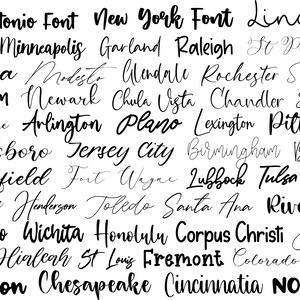 tonio Font New York Font Linc
Minneapolis Garland Raleigh St P
a Modesto Glendale Rochester S
m Newark Chula Vista Chandler
Arlington Plano Lexington Pitt
sboro Jersey City Birmingham
field Fort Wayne Lubbock Tulsa
Henderson Toledo Santa Ana Rive
o Wichita Honolulu Corpus Christi
Hialeah St Louis Fremont Colorado
on Chesapeake Cincinnatia NO